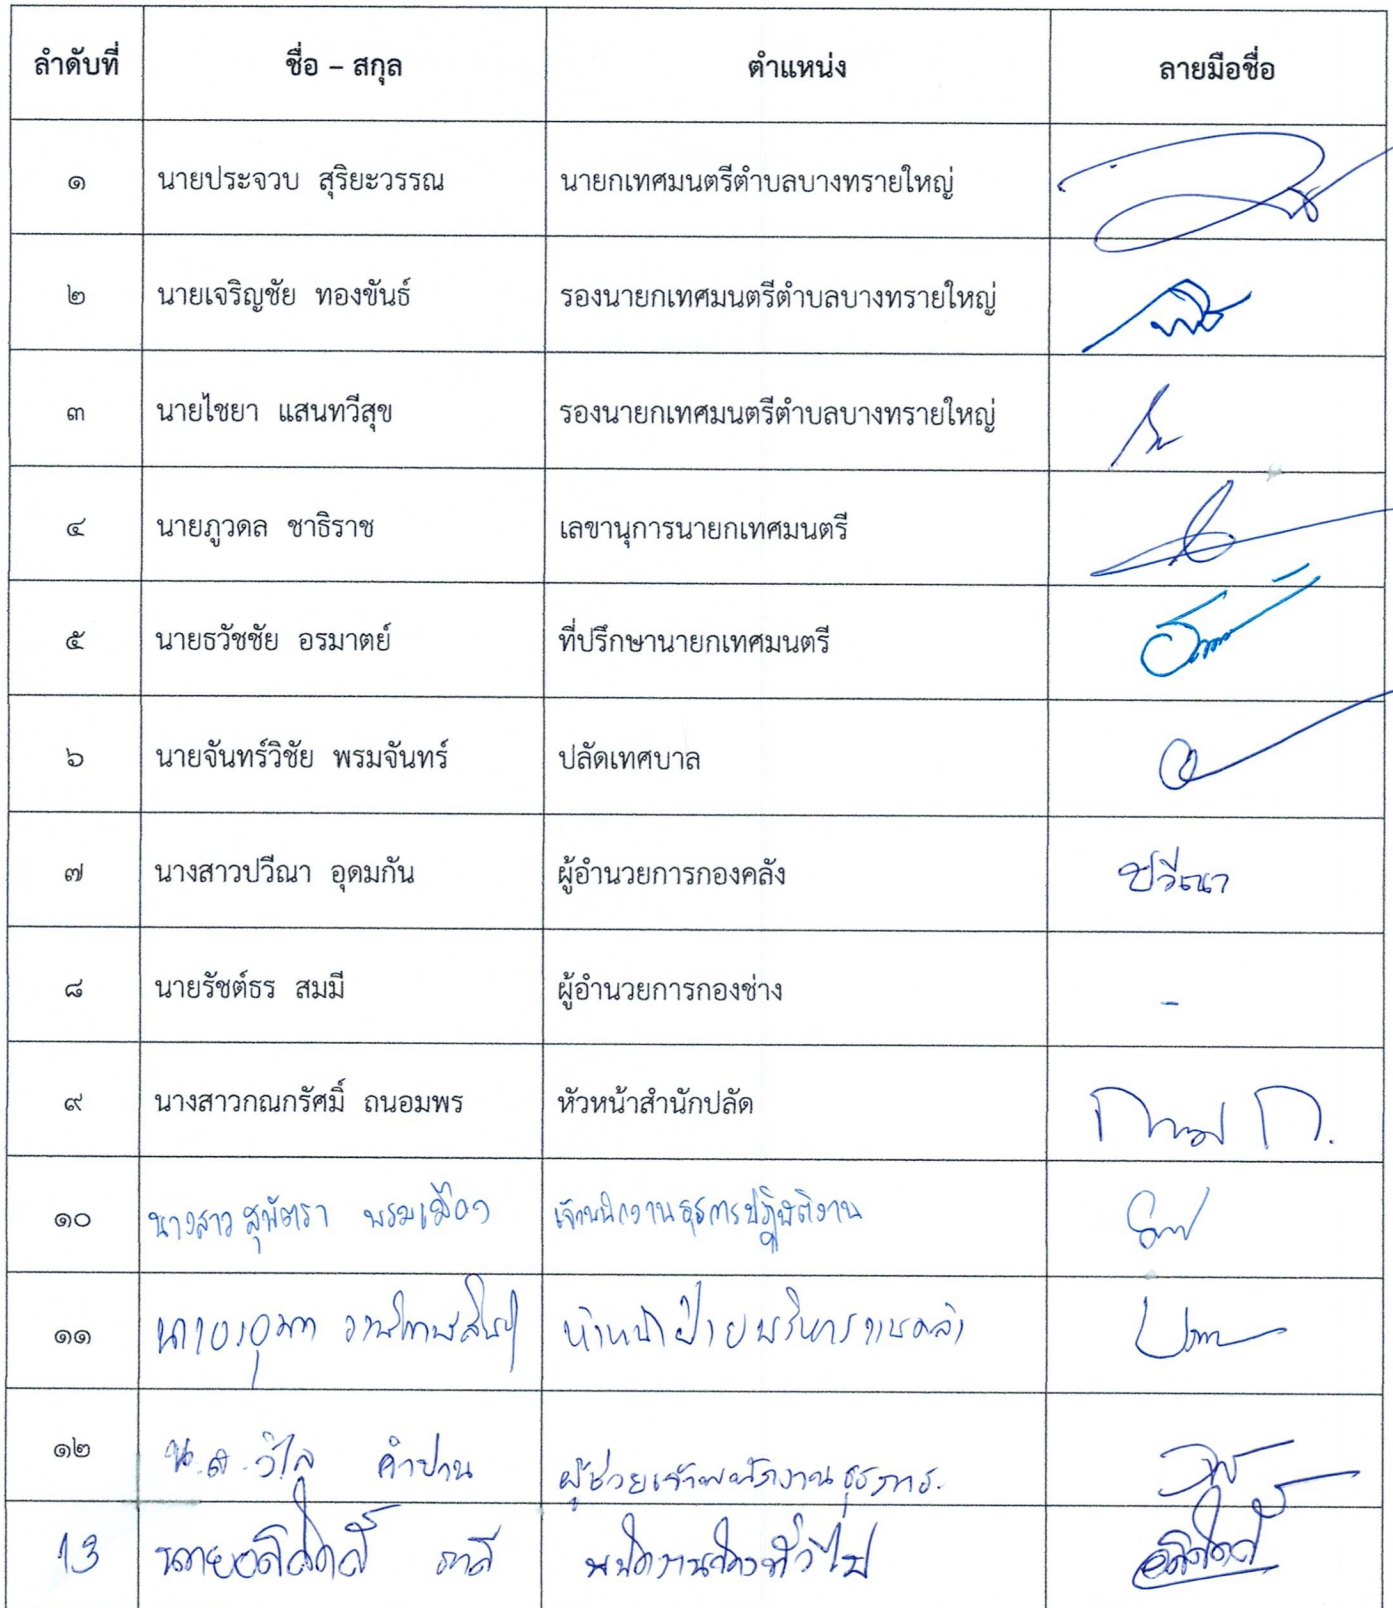 ลำดับที่ ชื่อ – สกุล ตำแหน่ง ลายมือชื่อ
๑ นายประจวบ สุริยะวรรณ นายกเทศมนตรีตำบลบางทรายใหญ่
๒ นายเจริญชัย ทองขันธ์ รองนายกเทศมนตรีตำบลบางทรายใหญ่
๓ นายไชยา แสนทวีสุข รองนายกเทศมนตรีตำบลบางทรายใหญ่
๔ นายภูวดล ชาธิราช เลขานุการนายกเทศมนตรี
๕ นายธวัชชัย อรมาตย์ ที่ปรึกษานายกเทศมนตรี
๖ นายจันทร์วิชัย พรมจันทร์ ปลัดเทศบาล
๗ นางสาวปวีณา อุดมกัน ผู้อำนวยการกองคลัง ปวีณา
๘ นายรัชต์ธร สมมี ผู้อำนวยการกองช่าง -
๙ นางสาวกณกรัศมิ์ ถนอมพร หัวหน้าสำนักปลัด
๑๐ นางสาวสุพัตรา พรมเมือง เจ้าพนักงานธุรการปฏิบัติงาน
๑๑ หัวหน้าฝ่ายบริหารงานคลัง
๑๒ น.ส.วิไล คำปาน ผู้ช่วยเจ้าพนักงานธุรการ.
13 พนักงานจ้างทั่วไป